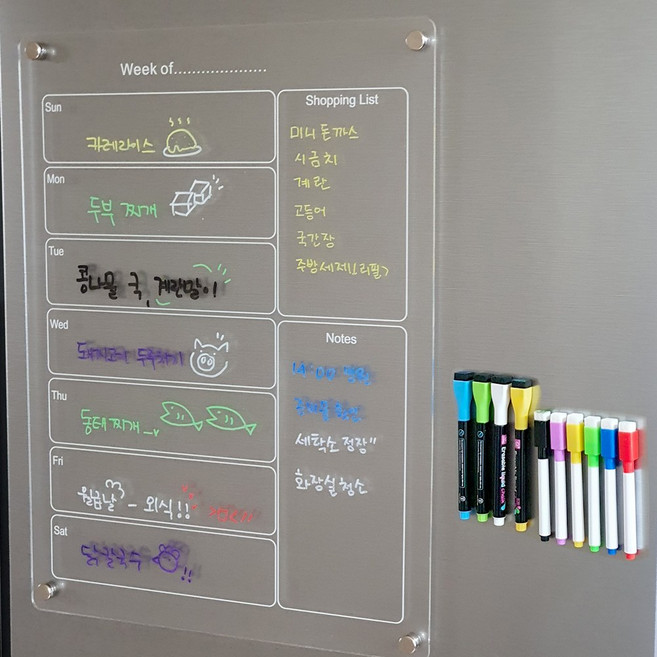 Week of....................
Sun
카레라이스
Mon
두부 찌개
Tue
콩나물 국, 계란말이
Wed
Thu
동태찌개
Fri
월급날 - 외식!!
Sat
닭칼국수 !!
Shopping List
미니돈까스
시금치
계란
고등어
국간장
주방세제(리필)
Notes
세탁소 정장"
화장실청소